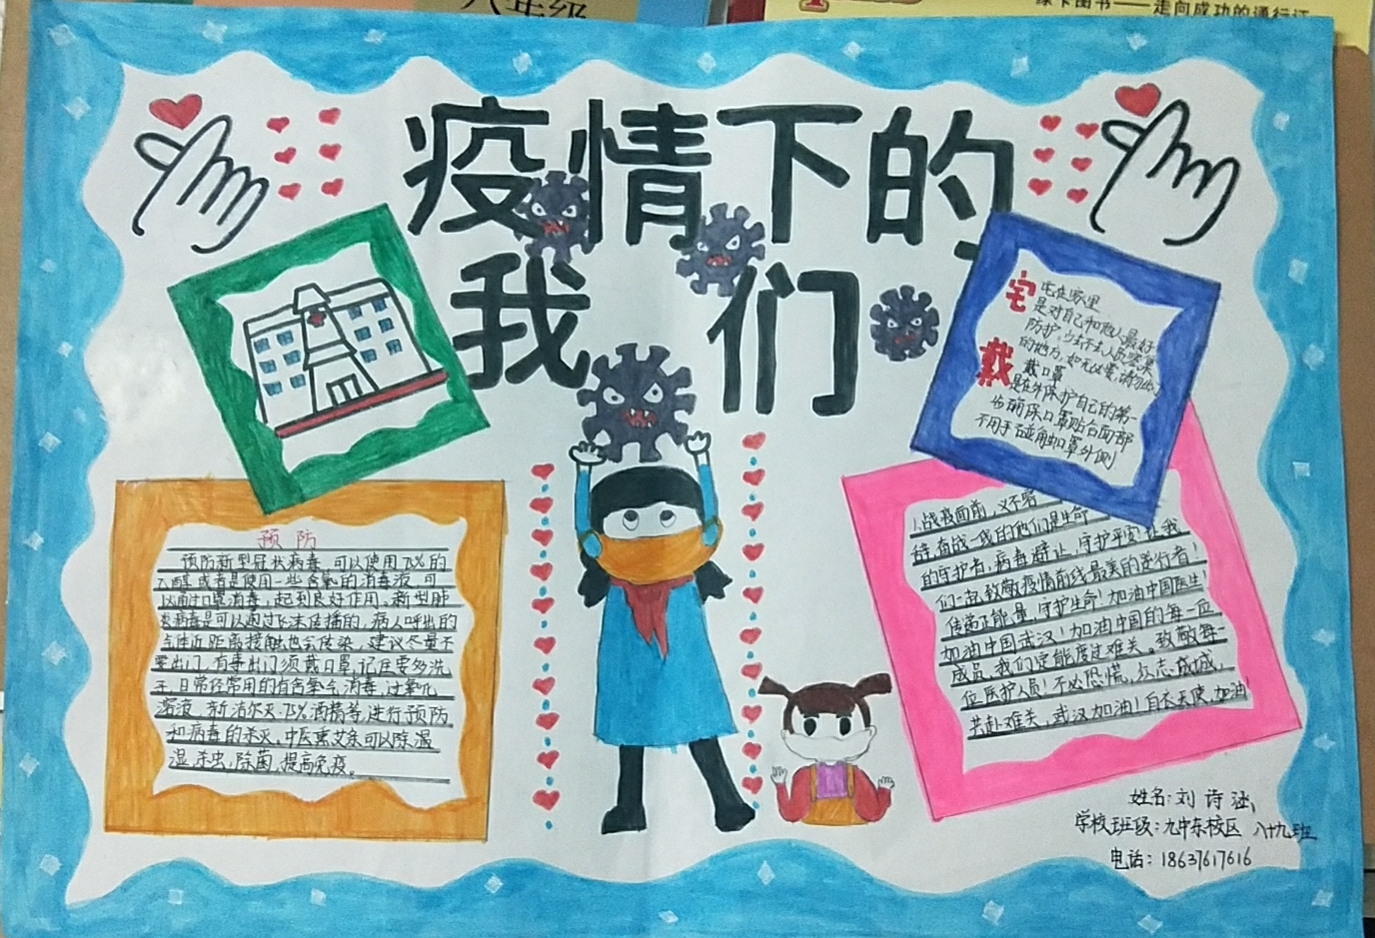 八年级
绿卡图书——走向成功的通行证
疫情下的
我们
宅
宅在家里
是对自己和他人最好
防护,少去不去人员密集
的地方,如无必要,请勿
戴
戴口罩
是在外保护自己的第一
步确保口罩贴合面部
不用手碰触口罩外侧
预防
预防新型冠状病毒,可以使用75%的
乙醇或者是使用一些含氯的消毒液,可
以耐过口罩消毒,起到良好作用。新型肺
炎病毒是可以通过飞沫传播的,病人呼出的
气体近距离接触也会传染,建议尽量不
要出门,有事出门须戴口罩,记住要多洗
手,日常经常用的有含氯气消毒,过氧化
溶液,新洁尔灭,75%酒精等,进行预防
和病毒的杀灭。中医熏艾条可以除湿
湿,杀虫,除菌,提高免疫。
1.战疫面前,义不容
奋战一线的他们是生命
的守护者,病毒避让,守护平安!让我
们一起致敬疫情前线最美的逆行者!
传递正能量,守护生命!加油中国医生!
加油中国武汉!加油中国的每一位
成员,我们定能度过难关。致敬每一
位医护人员!不必恐慌,众志成城,
共赴难关,武汉加油!白衣天使,加油!
姓名:刘诗涵
学校班级:九中东校区 八十九班
电话:18637617616